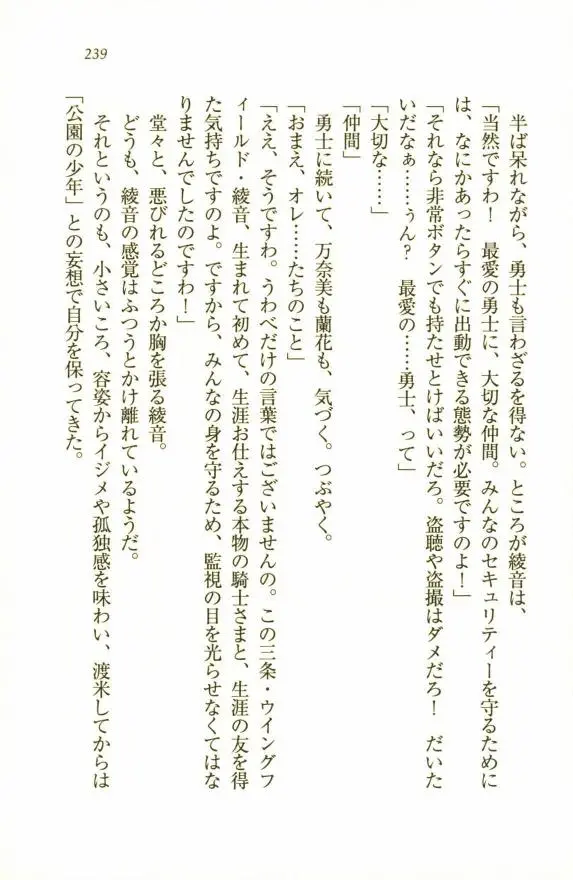 239
半ば呆れながら、勇士も言わざるを得ない。ところが綾音は、
「当然ですわ！　最愛の勇士に、大切な仲間。みんなのセキュリティーを守るために
は、なにかあったらすぐに出動できる態勢が必要ですのよ！」
「それなら非常ボタンでも持たせとけばいいだろ。盗聴や盗撮はダメだろ！　だいた
いだなぁ……ぅん？　最愛の……勇士、って」
「大切な……」
「仲間」
勇士に続いて、万奈美も蘭花も、気づく。つぶやく。
「おまえ、オレ……たちのこと」
「ええ、そうですわ。うわべだけの言葉ではございませんの。この三条・ウイングフ
ィールド・綾音、生まれて初めて、生涯お仕えする本物の騎士さまと、生涯の友を得
た気持ちですのよ。ですから、みんなの身を守るため、監視の目を光らせなくてはな
りませんでしたのですわ！」
堂々と、悪びれるどころか胸を張る綾音。
どうも、綾音の感覚はふつうとかけ離れているようだ。
それというのも、小さいころ、容姿からイジメや孤独感を味わい、渡米してからは
「公園の少年」との妄想で自分を保ってきた。